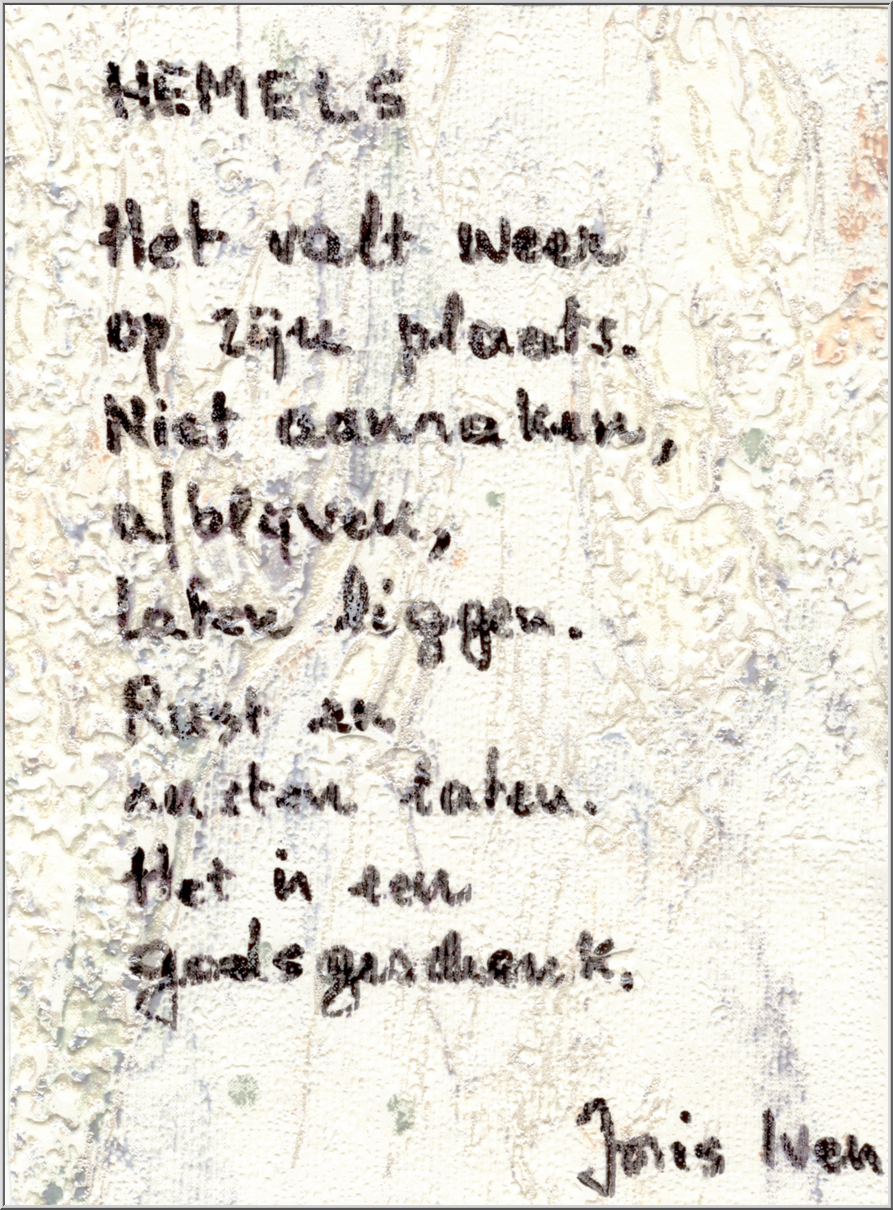 HEMELS
Het valt weer
op zijn plaats.
Niet aanraken,
afblijven,
Laten liggen.
Rust en
rusten laten.
Het is een
godsgeschenk.
Joris Iven